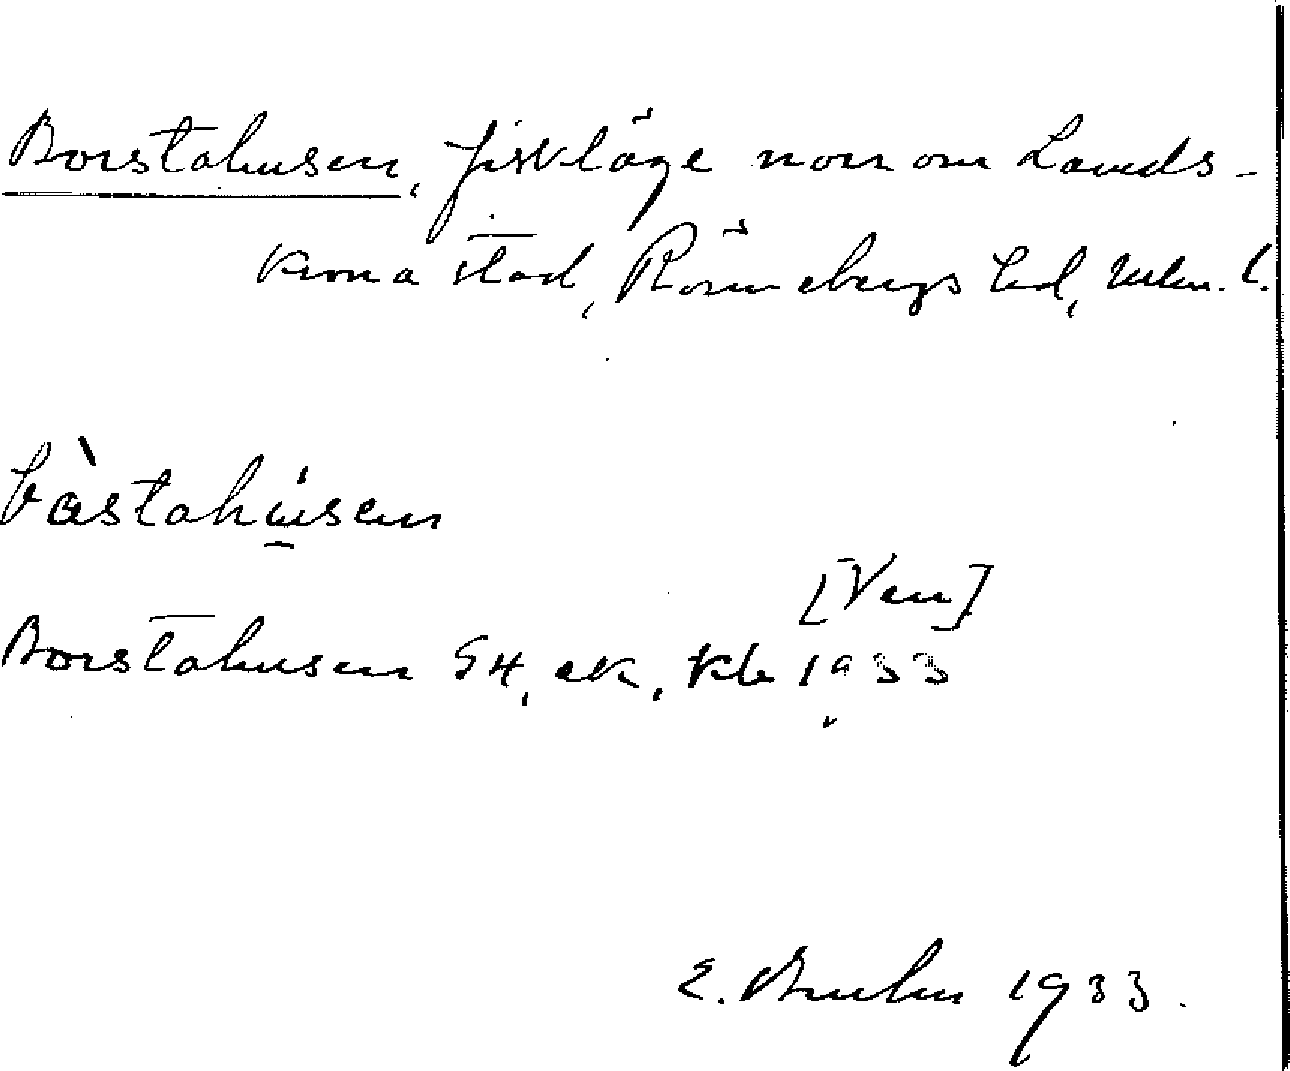 Borstahusen, fiskläge norr om Lands-
krona stad, Rönnebergs hd, Mlm. l.
bàstahu̱'sen
[Ven]
Borstahusen GH, ek, kb 1933
E. Bruhn 1933.